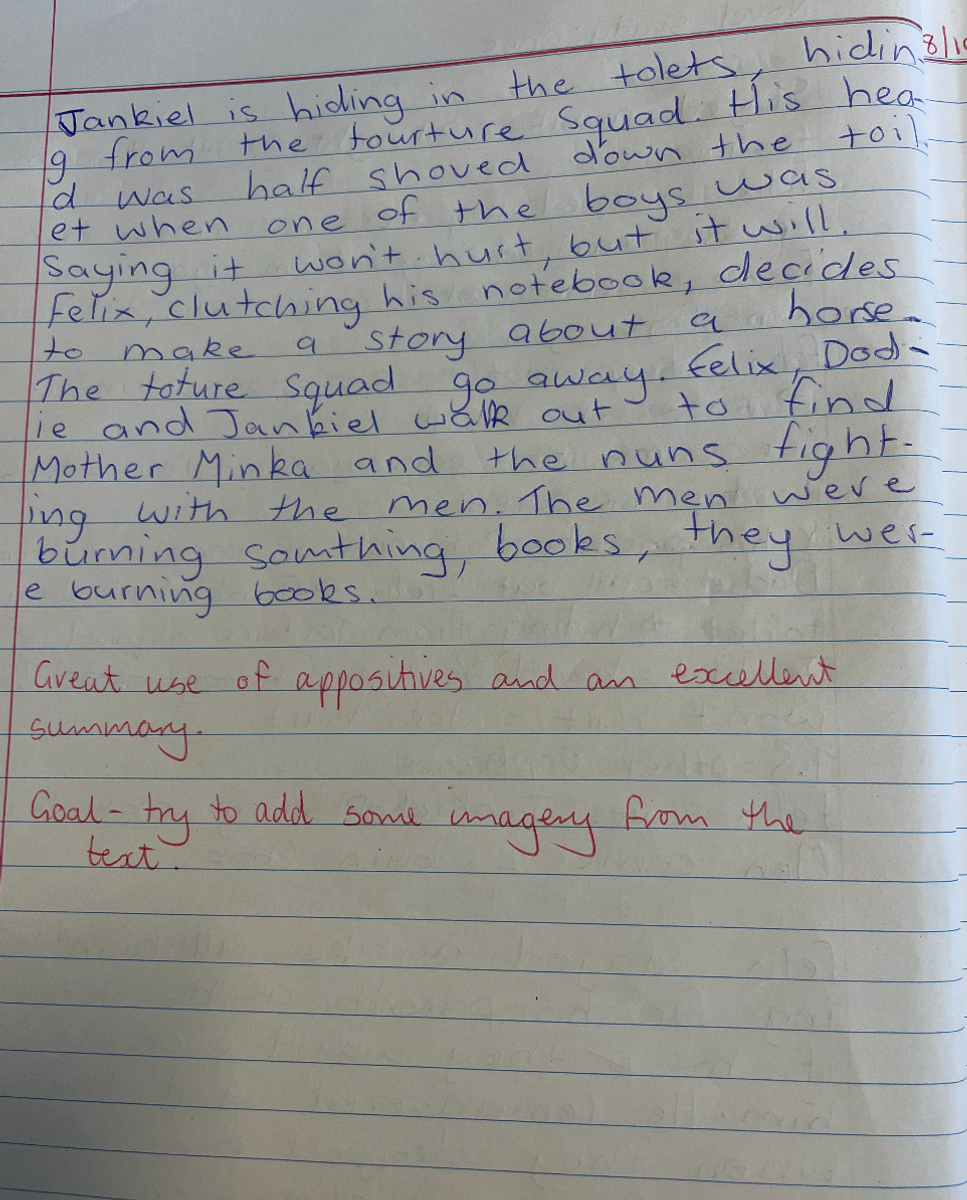 8/10
Jankiel is hiding in the tolets, hidin
g from the tourture Squad. His hea-
d was half shoved down the toil
et when one of the boys was
Saying it won't hurt, but it will.
Felix, clutching his notebook, decides
to make a story about a horse.
The toture Squad go away. Felix, Dod-
ie and Jankiel walk out to find
Mother Minka and the nuns fight-
ing with the men. The men were
burning somthing, books, they wer-
e burning books.
Great use of appositives and an excellent
summary.
Goal - try to add some imagery from the
text.